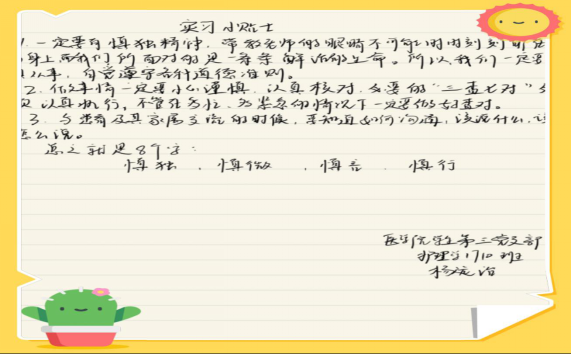 实习小贴士
1. 一定要有慎独精神，带教老师的眼睛不可能时时刻刻盯在
身上而我们所面对的是一条条鲜活的生命。所以我们一定要
以从事，自觉遵守各种道德准则。
2. 做事情一定要小心谨慎，认真核对，必要的“三查七对”
认真执行，不管在多忙、多紧急的情况下一定要做好查对。
3. 与患者及其家属交流的时候，要知道如何沟通，该说什么，该
怎么说。
总之就是8个字：
慎独、慎微、慎言、慎行
医学院学生第三党支部
护理学1710班